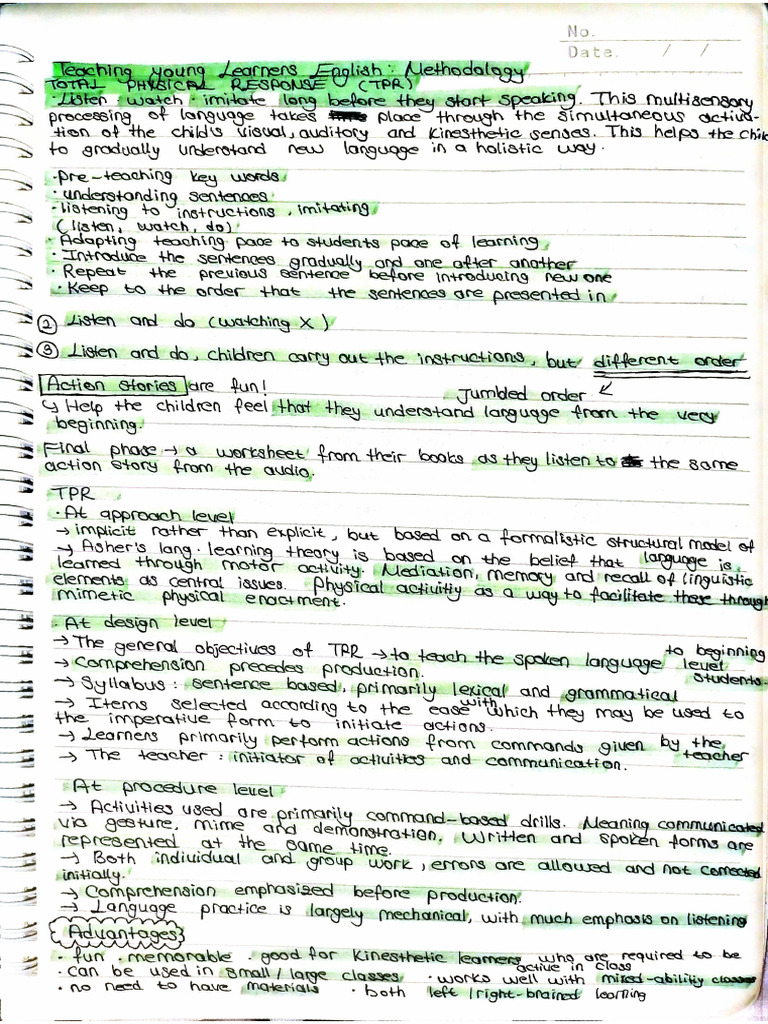 No.
Date. / /
Teaching young Learners English: Methodology
TOTAL PHYSICAL RESPONSE (TPR)
· Listen · watch · imitate long before they start speaking. This multisensory
processing of language takes place through the simultaneous activa-
tion of the child's visual, auditory and kinesthetic senses. This helps the child
to gradually understand new language in a holistic way.
· pre-teaching key words
· understanding sentences
· listening to instructions, imitating
(listen, watch, do)
· Adapting teaching pace to students pace of learning
· Introduce the sentences gradually and one after another
· Repeat the previous sentence before introducing new one
· Keep to the order that the sentences are presented in
② Listen and do (watching X)
③ Listen and do, children carry out the instructions, but different order
Action stories are fun! Jumbled order
↳ Help the children feel that they understand language from the very
beginning.
Final phase → a worksheet from their books as they listen to the same
action story from the audio.
TPR
· At approach level
→ implicit rather than explicit, but based on a formalistic structural model of
→ Asher's lang. learning theory is based on the belief that language is
learned through motor activity. Mediation, memory and recall of linguistic
elements as central issues. Physical activitiy as a way to facilitate these through
mimetic physical enactment.
· At design level
→ The general objectives of TPR → to teach the spoken language to beginning level students.
→ Comprehension precedes production.
→ Syllabus: sentence based, primarily lexical and grammatical
→ Items selected according to the ease with which they may be used to
the imperative form to initiate actions.
→ Learners primarily perform actions from commands given by the teacher
→ The teacher: initiator of activities and communication.
At procedure level
→ Activities used are primarily command-based drills. Meaning communicated
via gesture, mime and demonstration. Written and spoken forms are
represented at the same time.
→ Both individual and group work, errors are allowed and not corrected
initially.
→ Comprehension emphasized before production.
→ Language practice is largely mechanical, with much emphasis on listening
Advantages
· fun · memorable · good for kinesthetic learners who are required to be active in class
· can be used in small/large classes · works well with mixed-ability classes
· no need to have materials · both left/right-brained learning